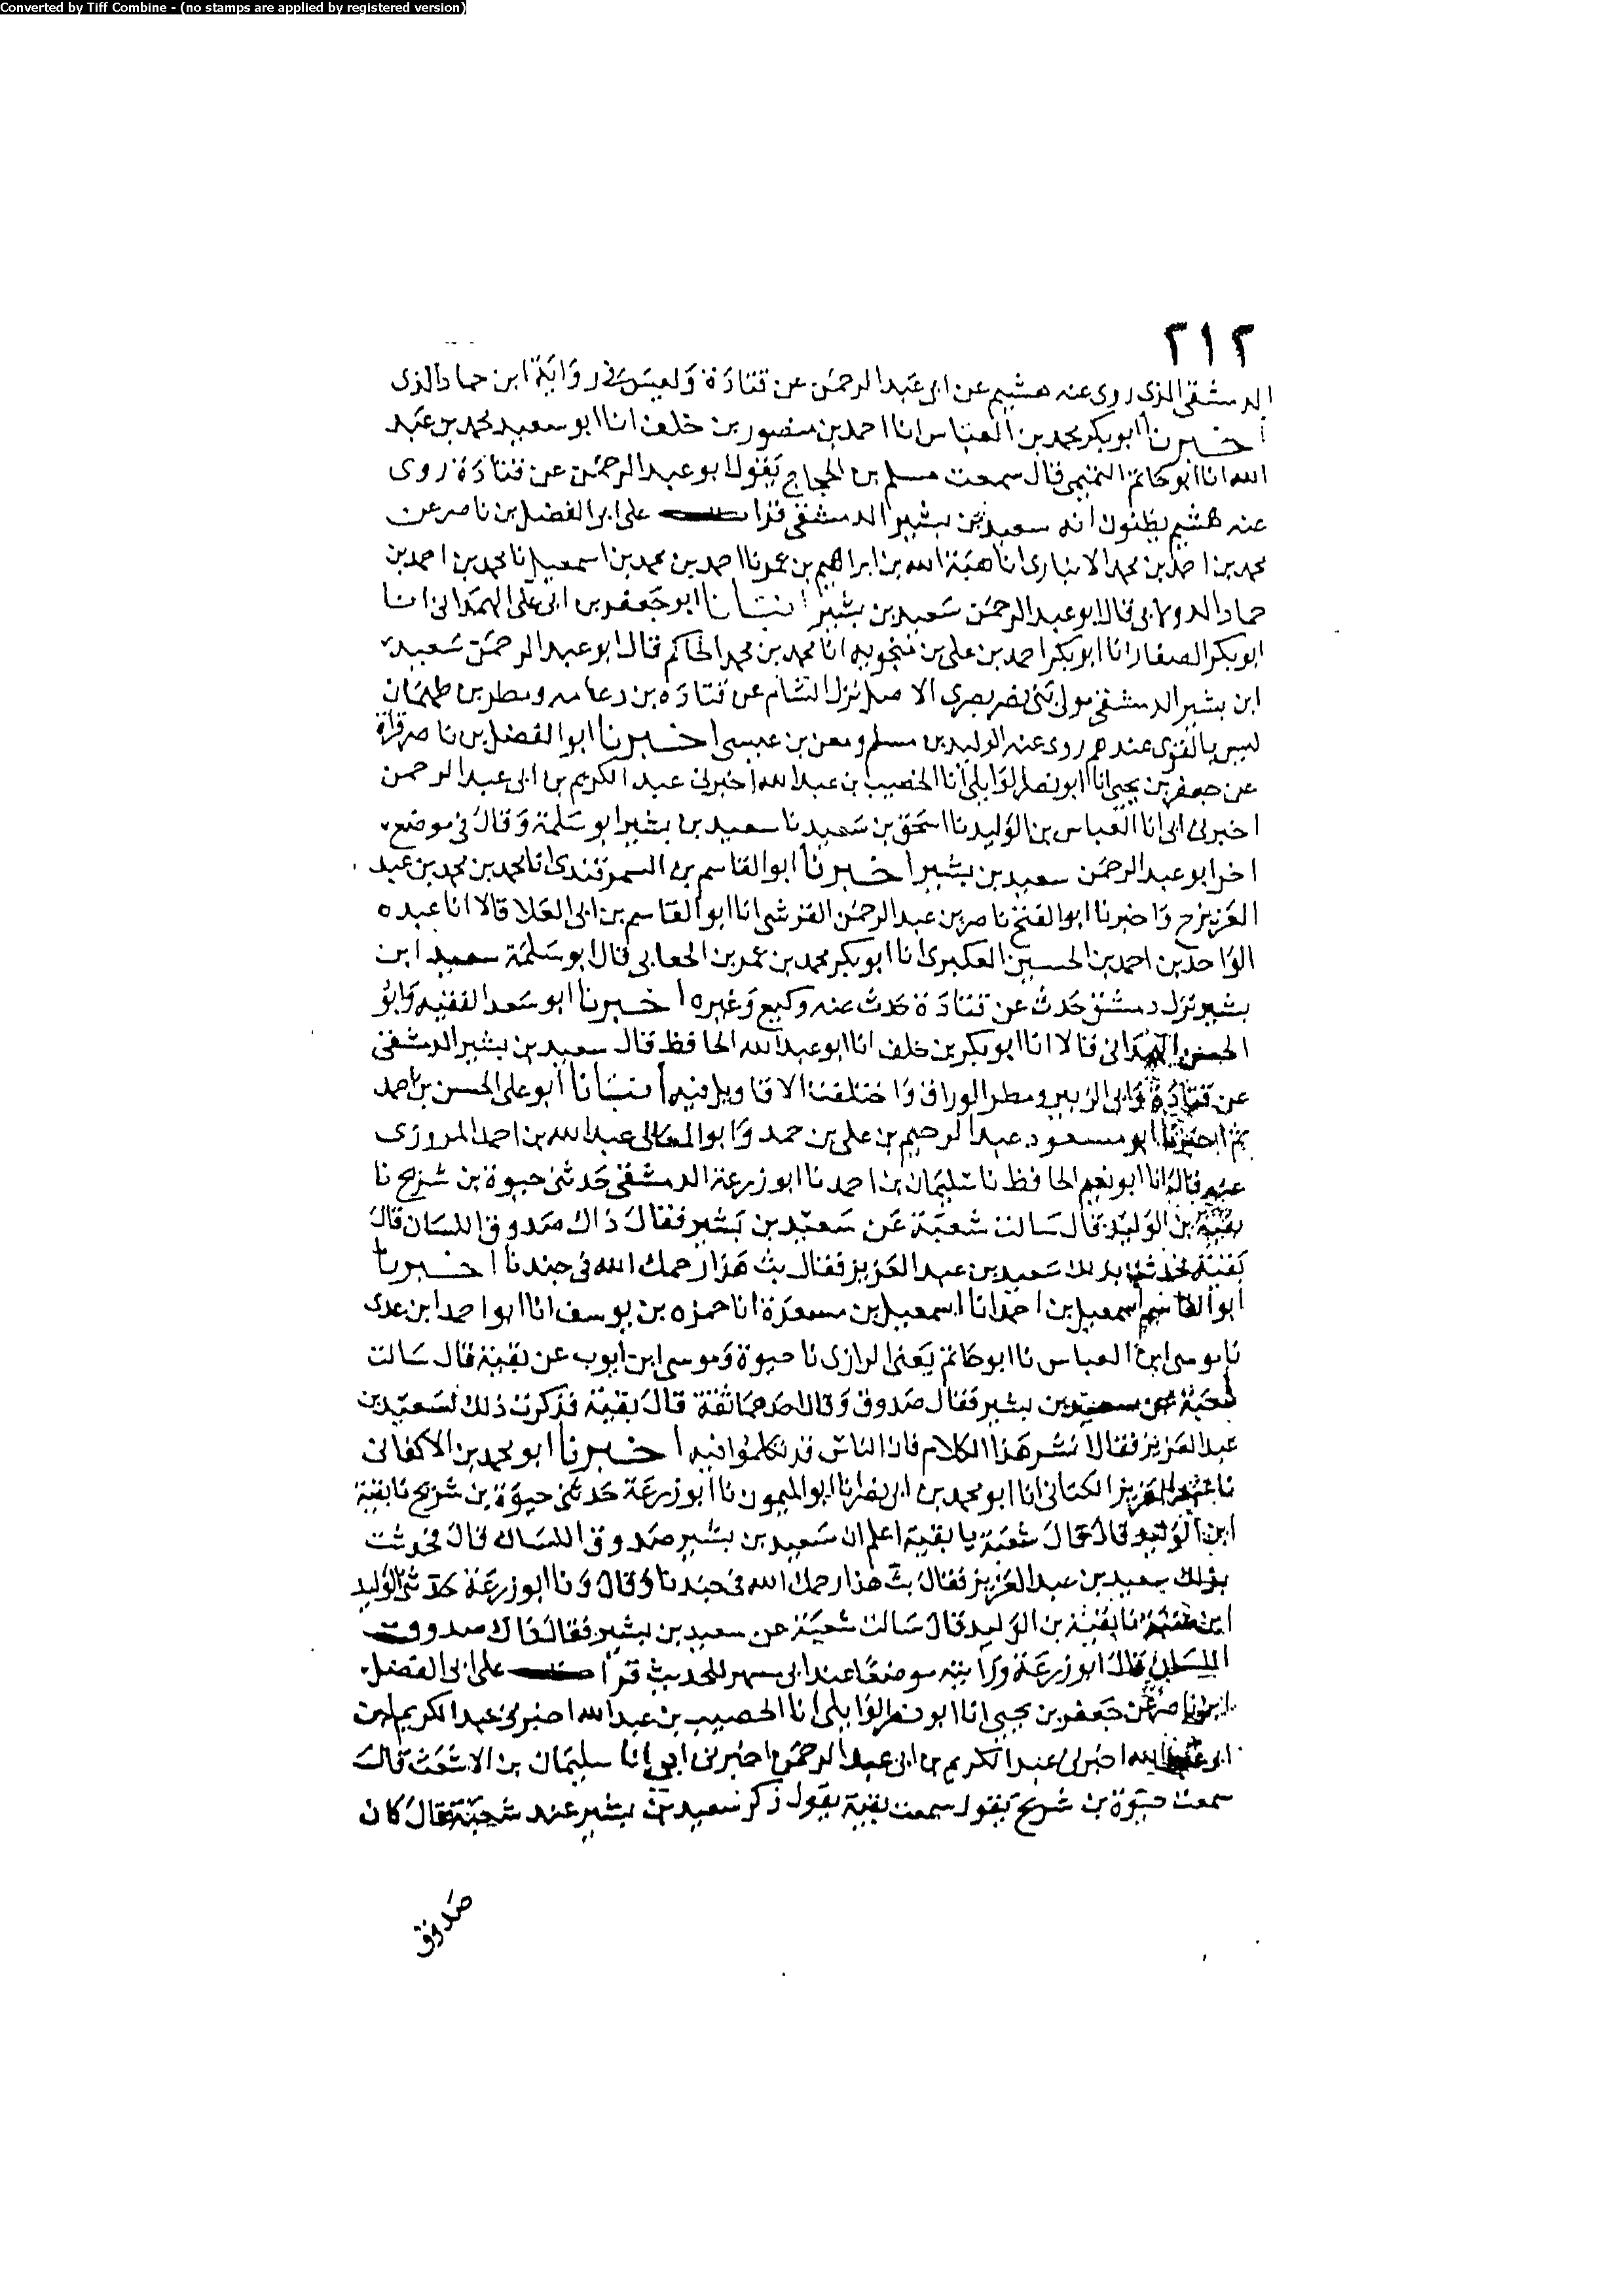 Converted by Tiff Combine - (no stamps are applied by registered version)
٢١٢
الدمشقي الذي روى عنه هشيم عن ابي عبد الرحمن عن قتادة وليس في رواية ابن حماد الذي
اخبرنا ابو بكر محمد بن العباس انا احمد بن منصور بن خلف انا ابو سعيد محمد بن عبد
الله انا ابو حاتم التميمي قال سمعت مسلم بن الحجاج يقول ابو عبد الرحمن عن قتادة روى
عنه هشيم يظنون انه سعيد بن بشير الدمشقي قرات على ابي الفضل بن ناصر عن
محمد بن احمد بن محمد الانباري انا هبة الله بن ابراهيم بن عمر نا احمد بن محمد بن اسمعيل نا محمد بن احمد بن
حماد الدولابي قال ابو عبد الرحمن سعيد بن بشير انبانا ابو جعفر بن ابي علي الهمداني انا
ابو بكر الصفار انا ابو بكر احمد بن علي بن منجويه انا محمد بن محمد الحاكم قال ابو عبد الرحمن سعيد
ابن بشير الدمشقي مولى بني نصر بصري الاصل نزل الشام عن قتادة بن دعامه ومطر بن طهمان
ليس بالقوي عندهم روى عنه الوليد بن مسلم ومعن بن عيسى اخبرنا ابو الفضل بن ناصر قراة
عن جعفر بن يحيى انا ابو نصر الوايلي انا الخصيب بن عبد الله اخبرني عبد الكريم بن ابي عبد الرحمن
اخبرني ابي انا العباس بن الوليد نا اسحق بن سعيد نا سعيد بن بشير ابو سلمة وقال في موضع
اخر ابو عبد الرحمن سعيد بن بشير اخبرنا ابو القاسم بن السمرقندي انا محمد بن محمد بن عبد
العزيز ح واخبرنا ابو الفتح ناصر بن عبد الرحمن القرشي انا ابو القاسم بن ابي العلا قالا انا عبده
الواحد بن احمد بن الحسين العكبري انا ابو بكر محمد بن عمر بن الجعابي قال ابو سلمة سعيد ابن
بشير نزل دمشق حدث عن قتادة حدث عنه وكيع وغيره اخبرنا ابو سعد الفقيه وابو
الحسن الهمداني قالا انا ابو بكر بن خلف انا ابو عبد الله الحافظ قال سعيد بن بشير الدمشقي
عن قتادة وابي الزبير ومطر الوراق واختلفت الاقاويل فيه انبانا ابو علي الحسن بن احمد
ثم اخبرنا ابو مسعود عبد الرحيم بن علي بن حمد وابو المعالي عبد الله بن احمد المروزي
عنه قالا انا ابو نعيم الحافظ نا سليمان بن احمد نا ابو زرعة الدمشقي حدثني حيوة بن شريح نا
بقية بن الوليد قال سالت شعبة عن سعيد بن بشير فقال ذاك صدوق اللسان قال
بقية فحدثت بذلك سعيد بن عبد العزيز فقال بث هذا رحمك الله في جندنا اخبرنا
ابو القاسم اسمعيل بن احمد انا اسمعيل بن مسعدة انا حمزه بن يوسف انا ابو احمد ابن عدى
نا موسى ابن العباس نا ابو حاتم يعني الرازي نا حيوة وموسى ابن ايوب عن بقية قال سالت
شعبة عن سعيد بن بشير فقال صدوق وقال احدهما ثقة قال بقية فذكرت ذلك لسعيد بن
عبد العزيز فقال انشر هذا الكلام فان الناس قد تكلموا فيه اخبرنا ابو محمد بن الاكفاني
نا عبد العزيز الكتاني انا ابو محمد بن ابي نصر انا ابو الميمون نا ابو زرعة حدثني حيوة بن شريح نا بقية
ابن الوليد قال قال شعبة يا بقية اعلم ان سعيد بن بشير صدوق اللسان قال فحدثت
بذلك سعيد بن عبد العزيز فقال بث هذا رحمك الله في جندنا وقال ونا ابو زرعة حدثني الوليد
ابن عتبة نا بقية بن الوليد قال سالت شعبة عن سعيد بن بشير فقال ذاك صدوق
اللسان قال ابو زرعة ورايته موضعا عند ابي مسهر للحديث قرات على ابي الفضل
ابن ناصر عن جعفر بن يحيى انا ابو نصر الوايلي انا الخصيب بن عبد الله اخبرني عبد الكريم ابن
ابي الله اخبرني عبد الكريم بن ابي عبد الرحمن اخبرني ابي انا سليمان بن الاشعث قال
سمعت حيوة بن شريح يقول سمعت بقية يقول ذكر سعيد بن بشير عند شعبة فقال كان
صدوق